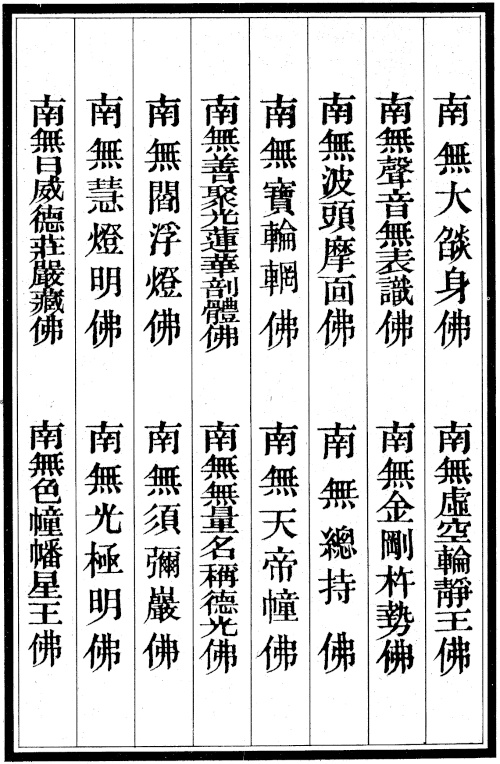 南無大燄身佛
南無虛空輪靜王佛
南無聲音無表識佛
南無金剛杵勢佛
南無波頭摩面佛
南無總持佛
南無寶輪輞佛
南無天帝幢佛
南無善聚光蓮華剖體佛
南無無量名稱德光佛
南無閻浮燈佛
南無須彌巖佛
南無慧燈明佛
南無光極明佛
南無日威德莊嚴藏佛
南無色幢幡星王佛